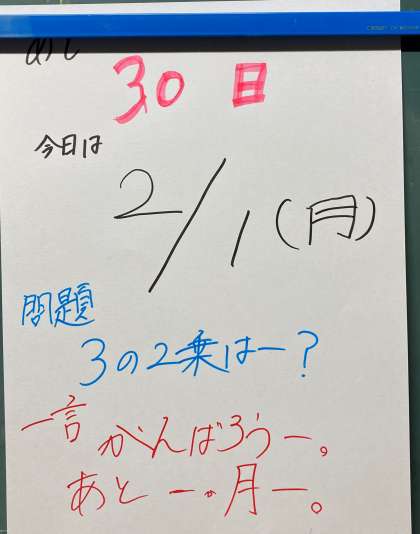 30日
今日は
2/1(月)
問題
3の2乗はー?
一言
がんばろうー。
あと一か月ー。